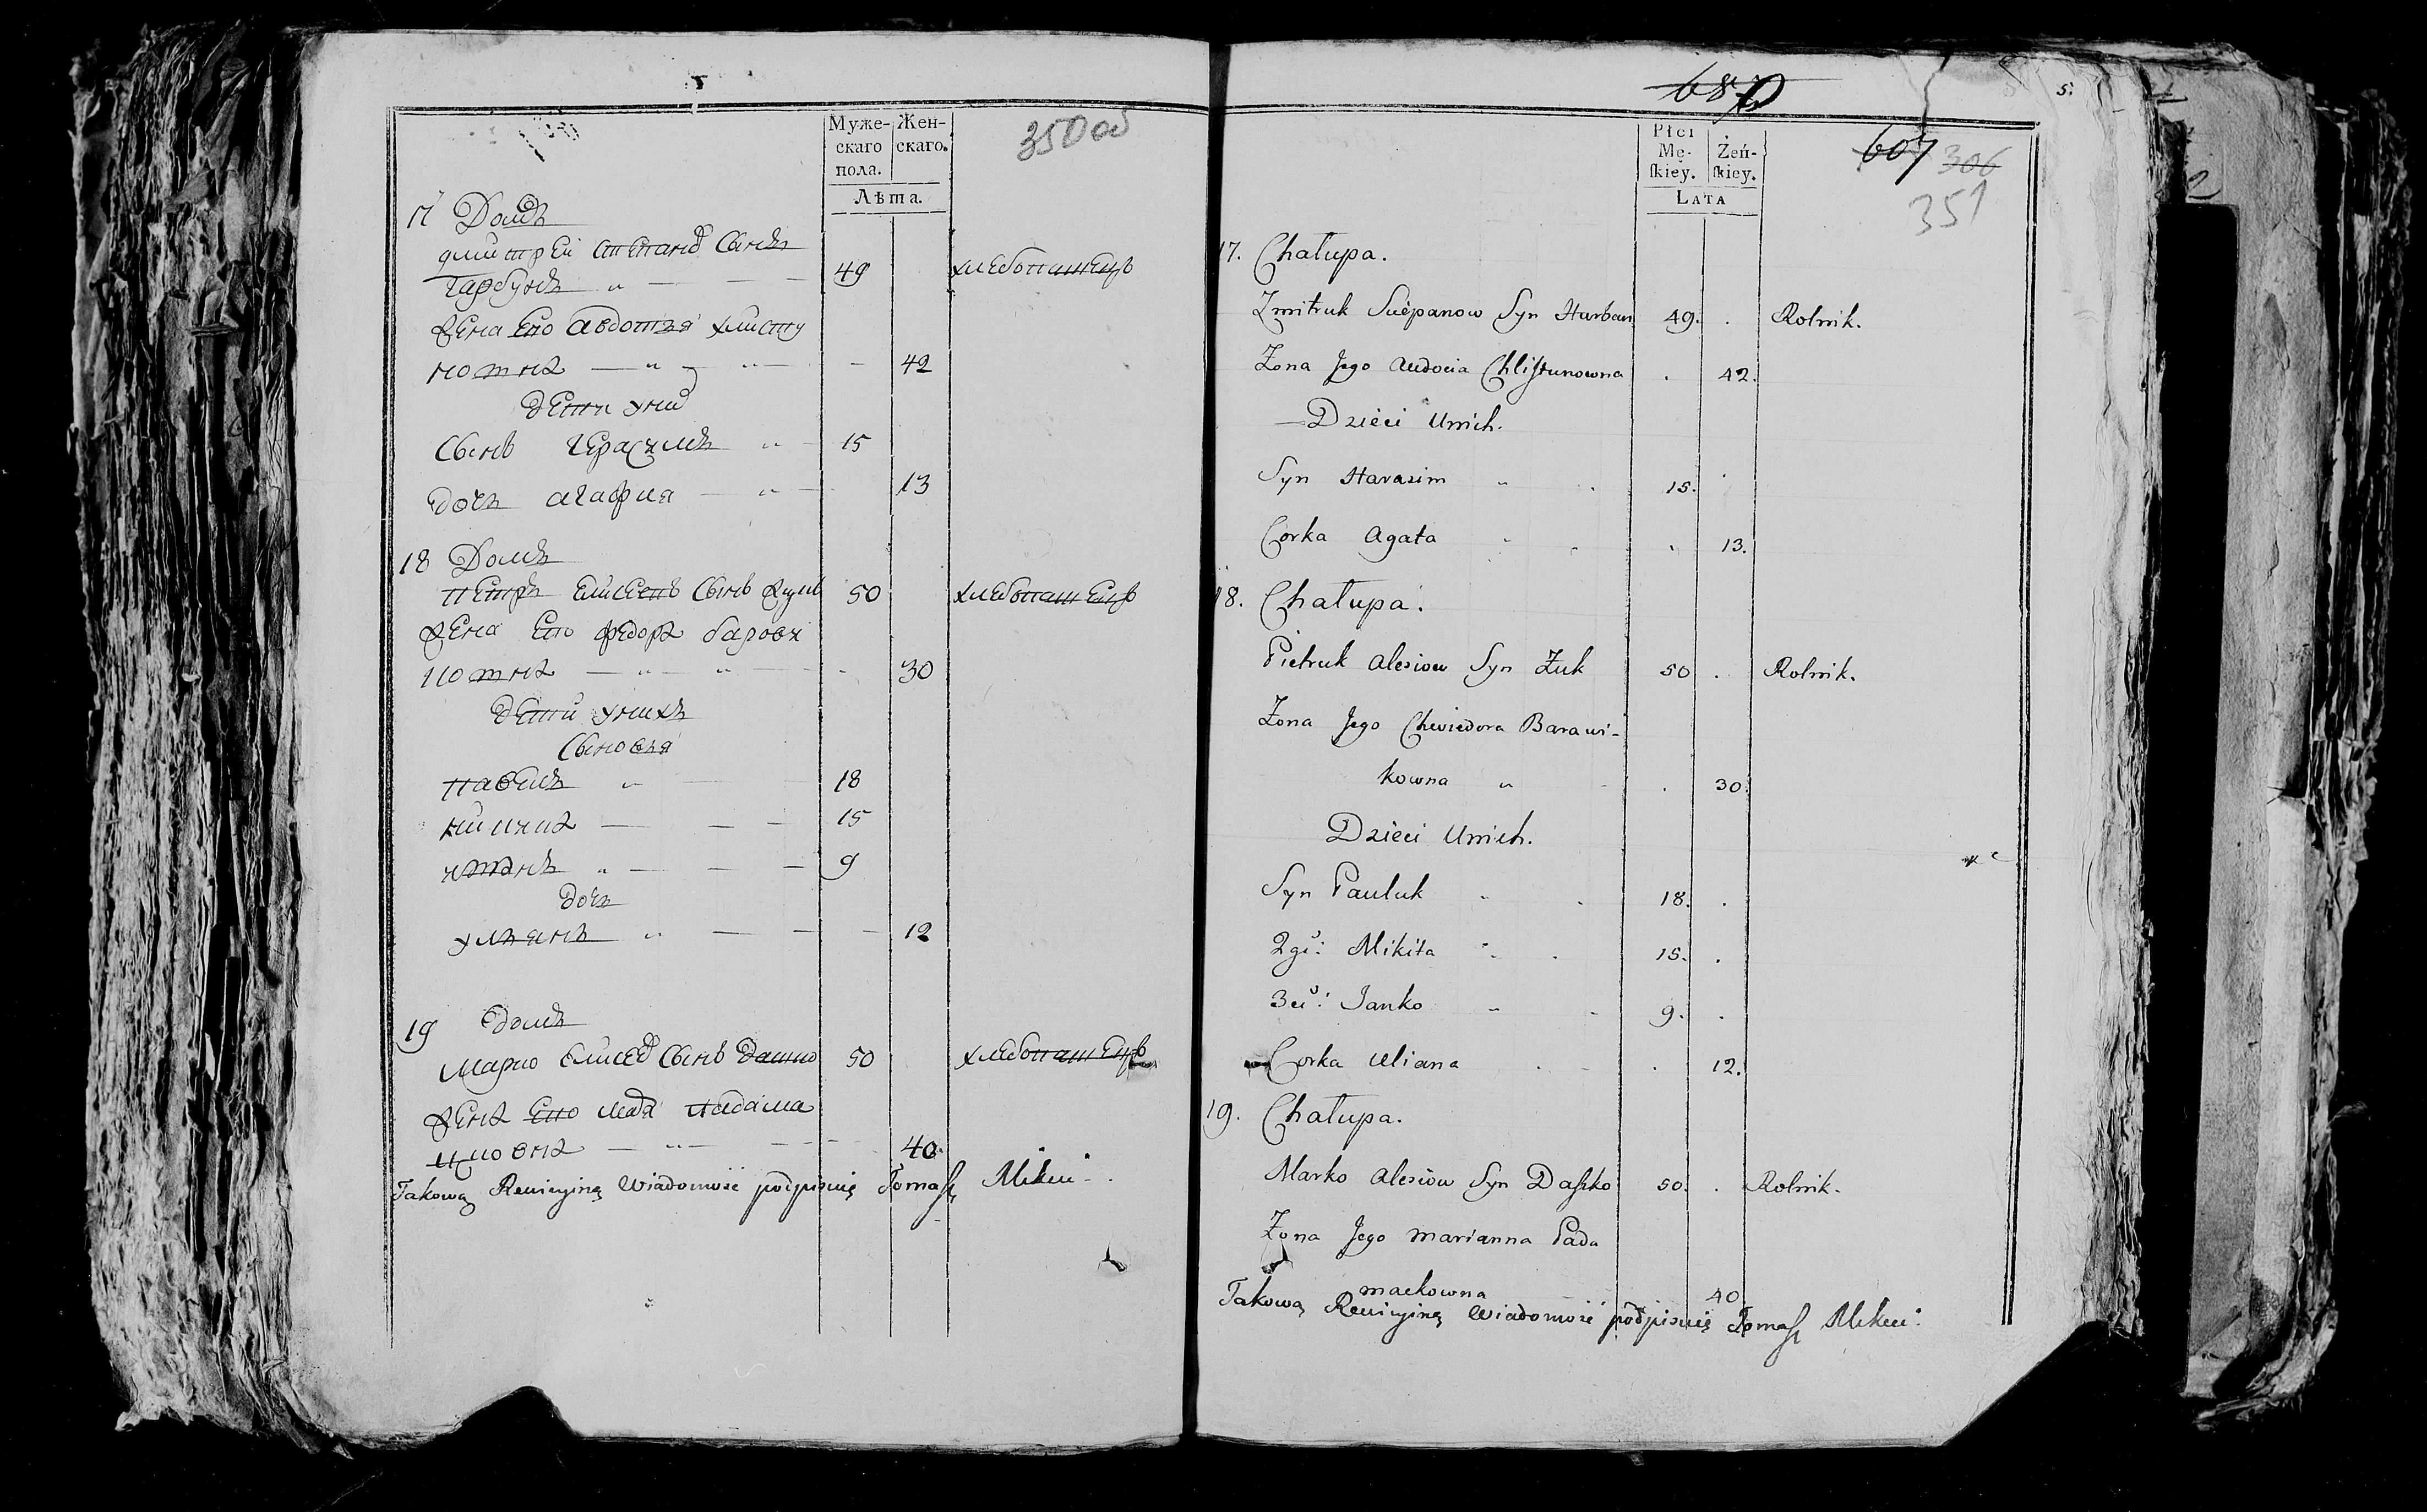 Муже-
скаго
пола.
Жен-
скаго.
Лѣта.
350 об
17 Домъ
дмитрей степановъ Сынъ
Гарбунъ 49 хлебопашецъ
Жена Его Авдотья хлисту
нотна 42
дети унихъ
Сынъ Герасимъ 15
дочь агафия 13
18 Домъ
петръ Елисеевъ Сынъ Жукъ 50 хлебопашецъ
Жена Его федора барови
ко 30
дети унихъ
Сыновья
павелъ 18
микита 15
9
дочь
ульяна 12
19 домъ
Марко Сынъ Дашко 50 хлебопашецъ
Жена Его падама
40
Takową Rewizyiną Wiadomość podpisuię Tomasz
687
5.
Płci
Mę-
ſkiey.
Żeń-
ſkiey.
LATA
607 306
351
17. Chałupa.
Zmitruk Sciepanow Syn Harbun 49. . Rolnik.
Zona Jego Audocia Chlistunowna . 42.
Dzieci Unich.
Syn Harasim 15. .
Corka Agata . 13.
18. Chałupa.
Pietruk Alesiow Syn Żuk 50 . Rolnik.
Zona Jego Chwiedora Barawi-
kowna . 30.
Dzieci Unich.
Syn Pauluk 18. .
2gi: Mikita 15. .
3ci: Janko 9. .
Corka Uliana . 12.
19. Chałupa.
Marko Alesiow Syn Daszko 50. . Rolnik.
Zona Jego Marianna Pada
maekowna 40
Takową Rewizyiną Wiadomość podpisuię Tomasz